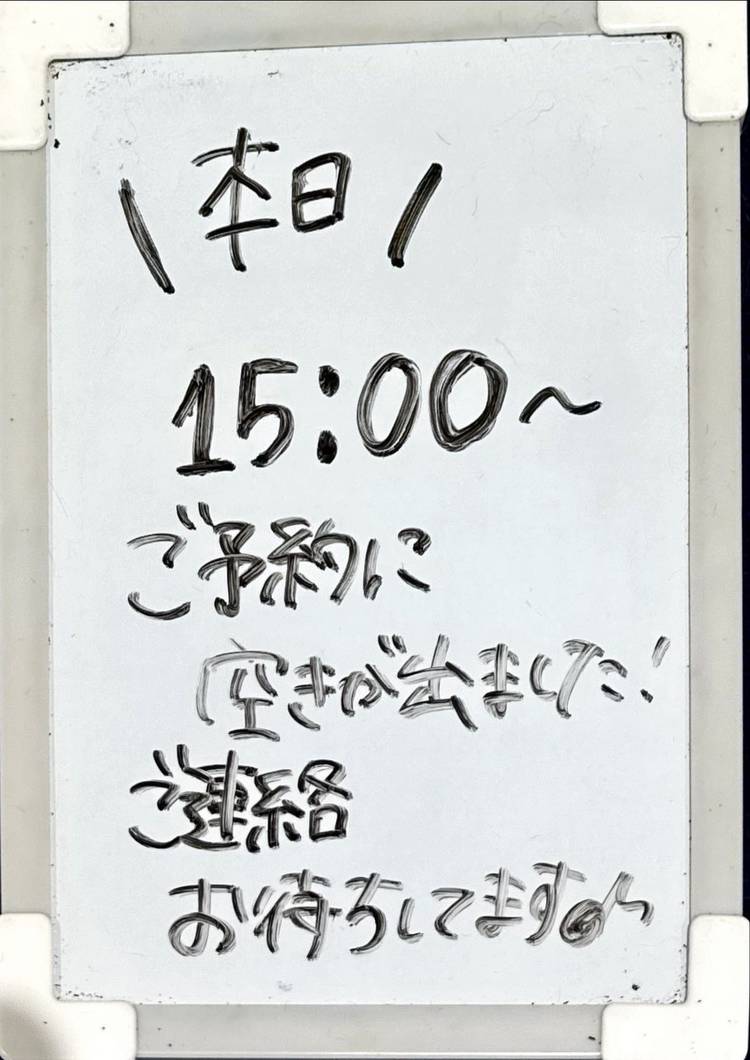 \ 本日 /
15:00~
ご予約に
空きが出ました!
ご連絡
お待ちしてます